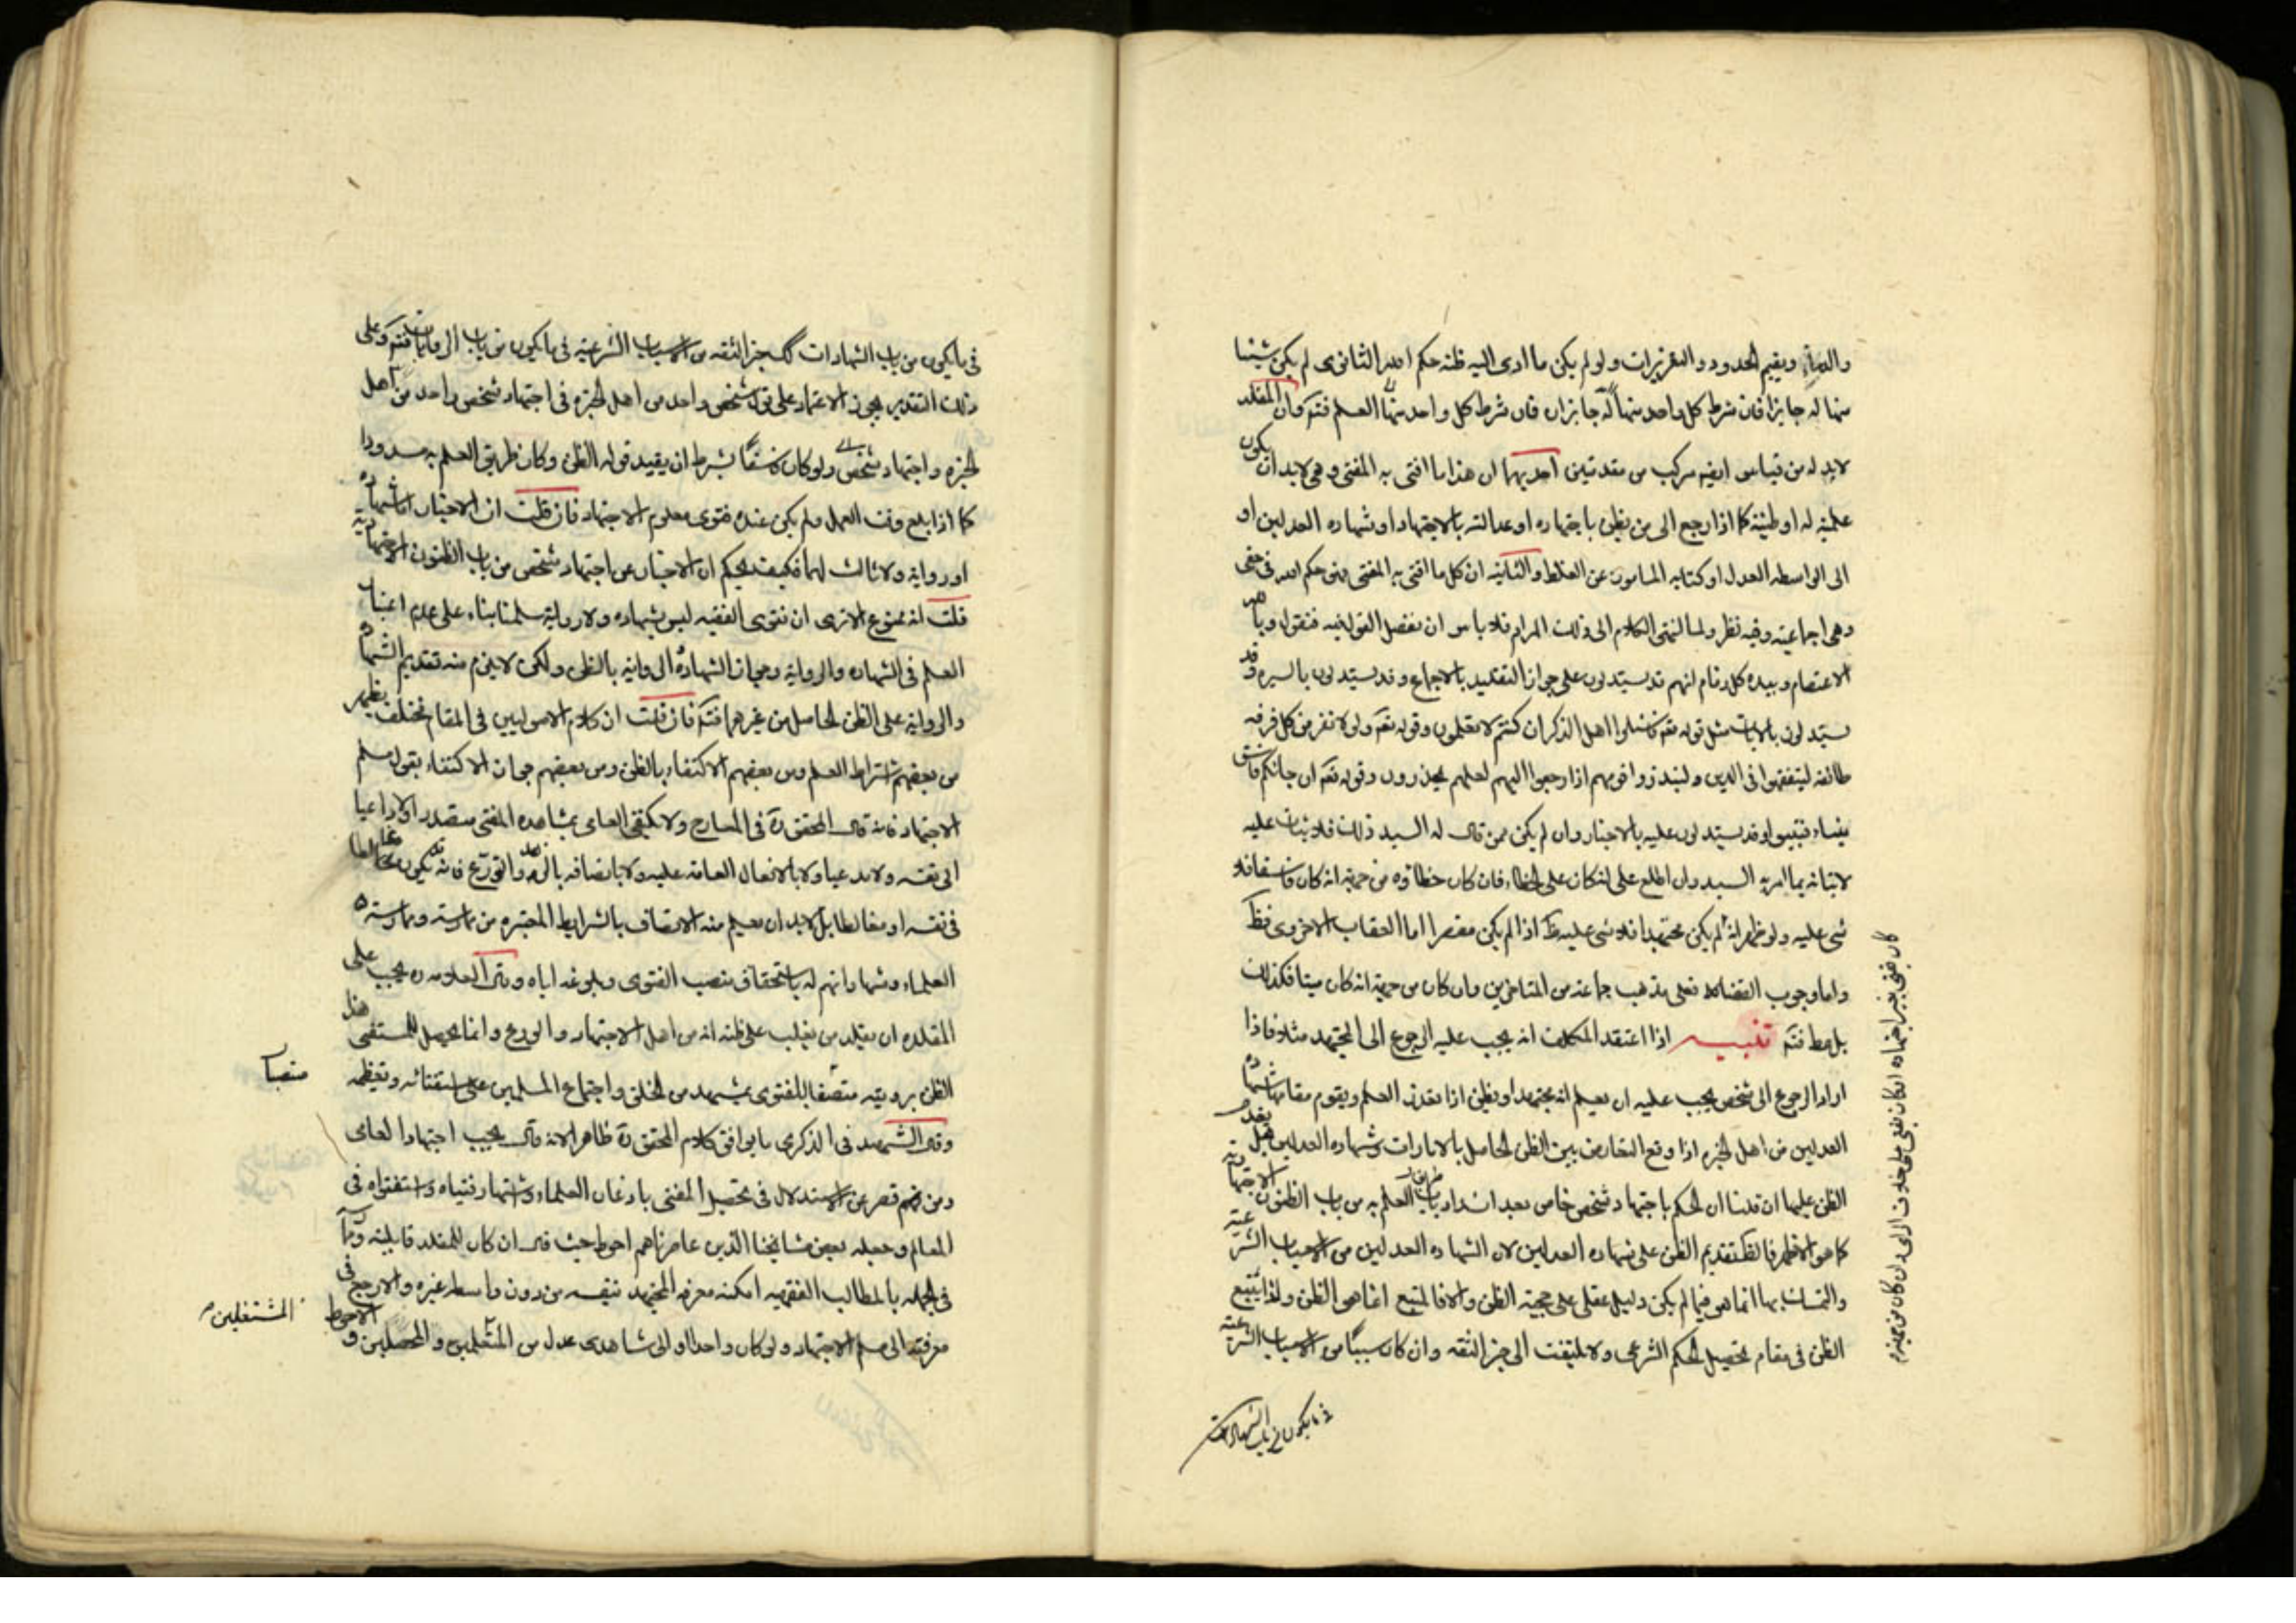 والدماء ويقيم الحدود والتعزيرات ولو لم يكن ما ادى اليه ظنه حكم الله الثانوى لم يكن شيئا
منها له جايزا فان شرط كل واحد منها العلم فتم وان المقلد
لابد له من قياس مركب من مقدمتين احديهما ان هذا ما افتى به المفتى وهى لابد ان يكون
علمية له او ظنية كما اذا رجع الى من يظن باجتهاده او عدالته بالاجتهاد او شهاده العدلين او
الى الواسطه العدل او كتابه المامون عن الغلط والثانية ان كل ما افتى به المفتى فهو حكم الله فى حقى
وهى اجماعية وفيه نظر ولما انتهى الكلام الى ذلك المرام فلا باس ان نفصل القول فيه فنقول وبالله
الاعتصام وبيده كل زمام انهم قد يستدلون على جواز التقليد بالاجماع وقد يستدلون بالسيره وقد
يستدلون بالايات مثل قوله تعه فاسئلوا اهل الذكر ان كنتم لا تعلمون وقوله تعه ولولا نفر من كل فرقه
طائفه ليتفقهوا فى الدين ولينذروا قومهم اذا رجعوا اليهم لعلهم يحذرون وقوله تعه ان جائكم فاسق
بنباء فتبينوا وقد يستدلون عليه بالاخبار وان لم يكن ممن قال له السيد ذلك
لاتيانه بما امر به السيد وان اطلع على انه كان على الخطاء فان كان خطاؤه من جهة انه كان فاسقا فلا
شى عليه ولو ظهر انه لم يكن مجتهدا فلا شى عليه اذا لم يكن مقصرا اما العقاب الاخروى فظ
واما وجوب القضاء فعلى مذهب جماعة من المتاخرين وان كان من جهة انه كان ميتا فكذلك
فتم تنبيه اذا اعتقد المكلف انه يجب عليه الرجوع الى المجتهد مثلا فاذا
اراد الرجوع الى شخص يجب عليه ان يعلم انه مجتهد او يظن اذا تعذر العلم ويقوم مقامها شهاده
العدلين من اهل الخبره اذا وقع التعارض بين الظن الحاصل بالامارات وشهاده العدلين هل يقدم
الظن عليها ان قلنا ان الحكم باجتهاد شخص خاص بعد انسداد باب العلم به من باب الظنون الاجتهادية
كما هو الاظهر فالظ تقديم الظن على شهاده العدلين لان الشهاده العدلين من الاسباب الشرعية
والتمسك بها انما هو فيما لم يكن دليل عقلى على حجية الظن والا فالمتبع انما هو الظن ولذا يتبع
الظن فى مقام تحصيل الحكم الشرعى ولا يلتفت الى خبر الثقه وان كان سببا من الاسباب الشرعية
فى ما يكون من باب الشهادات
فى ما يكون من باب الشهادات كك خبر الثقه من الاسباب الشرعية فى ما يكون من باب الروايات فتم وعلى
ذلك التقدير يجوز الاعتماد على قول شخص واحد من اهل الخبره فى اجتهاد شخص واحد من اهل
الخبره واجتهاد شخص ولو كان فاسقا بشرط ان يفيد قوله الظن وكان طريق العلم به مسدودا
كما اذا بلغ وقت العمل ولم يكن عنده فتوى معلوم الاجتهاد فان قلت ان الاخبار اما شهاده
او رواية ولا ثالث لهما فكيف تحكم ان الاخبار عن اجتهاد شخص من باب الظنون الاجتهادية
قلت انه ممنوع الا ترى ان فتوى الفقيه ليس بشهاده ولا رواية سلمنا بناء على عدم اعتبار
العلم فى الشهاده والرواية وجواز الشهاده والرواية بالظن ولكن لا يلزم منه تقديم الشهاده
والرواية على الظن الحاصل من غيرهما فتم فان قلت ان كلام الاصوليين فى المقام مختلف يظهر
من بعضهم اشتراط العلم ومن بعضهم الاكتفاء بالظن ومن بعضهم جواز الاكتفاء بقول مسلم
الاجتهاد فانه قال المحقق ره فى المعارج ولا يكتفى العامى بمشاهده المفتى متصدرا ولا داعيا
الى نفسه ولا مدعيا ولا باقبال العامة عليه ولا باتصافه بالزهد والتورع فانه قد يكون غالطا
فى نفسه او مغالطا بل لابد ان يعلم منه الاتصاف بالشرايط المعتبره من ممارسته وممارسة
العلماء وشهادتهم له باستحقاق منصب الفتوى وبلوغه اياه وقال العلامه ره يجب على
المقلد ان يقلد من يغلب على ظنه انه من اهل الاجتهاد والورع وانما يحصل للمستفتى هذا
الظن برؤيته منتصبا للفتوى بمشهد من الخلق واجتماع المسلمين على استفتائه وتعظيمه
وقال الشهيد فى الذكرى ما يوافق كلام المحقق ره ظاهرا لانه قال يجب اجتهاد العامى
ومن قصر عن الاستدلال فى تحصيل المفتى باذعان العلماء واشتهار فتياه واستفتواه فى
المعالم وجعله بعض مشايخنا الذين عاصرناهم احوط حيث قال ان كان للمقلد قابلية
فى الجمله بالمطالب الفقهيه امكنه معرفه المجتهد بنفسه من دون واسطه غيره والارجح فى
معرفته الى مسلم الاجتهاد ولو كان واحدا او الى شاهدى عدل من المتعلمين والمحصلين و الاحوط
منتصبا
المشتغلين